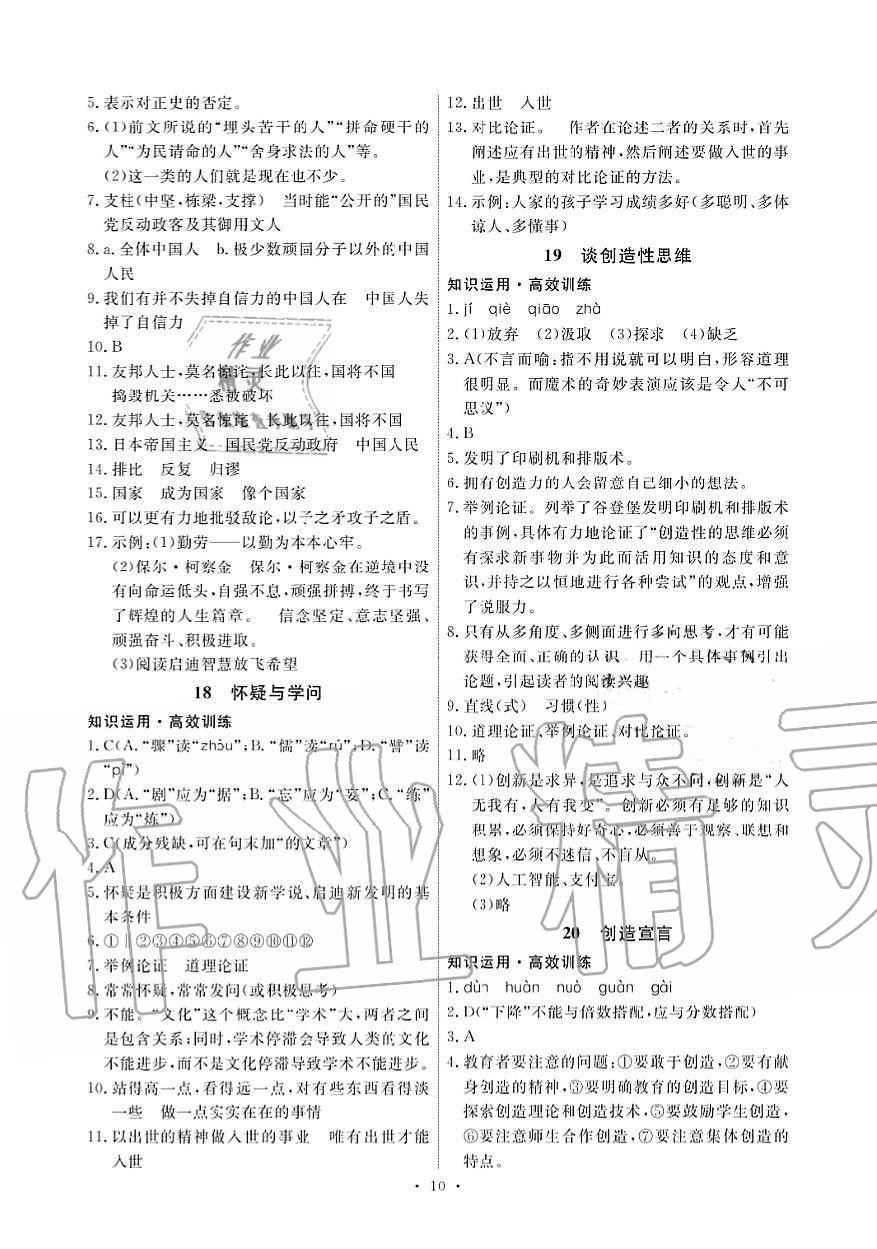 5. 表示对正史的否定。
6. (1)前文所说的“埋头苦干的人”“拼命硬干的
人”“为民请命的人”“舍身求法的人”等。
(2)这一类的人们就是现在也不少。
7. 支柱(中坚,栋梁,支撑)　当时能“公开的”国民
党反动政客及其御用文人
8. a. 全体中国人　b. 极少数顽固分子以外的中国
人民
9. 我们有并不失掉自信力的中国人在　中国人失
掉了自信力
10. B
11. 友邦人士,莫名惊诧,长此以往,国将不国
捣毁机关……悉被破坏
12. 友邦人士,莫名惊诧　长此以往,国将不国
13. 日本帝国主义　国民党反动政府　中国人民
14. 排比　反复　归谬
15. 国家　成为国家　像个国家
16. 可以更有力地批驳敌论,以子之矛攻子之盾。
17. 示例:(1)勤劳——以勤为本本心牢。
(2)保尔·柯察金　保尔·柯察金在逆境中没
有向命运低头,自强不息,顽强拼搏,终于书写
了辉煌的人生篇章。　信念坚定、意志坚强、
顽强奋斗、积极进取。
(3)阅读启迪智慧放飞希望
18　怀疑与学问
知识运用·高效训练
1. C(A. “骤”读“zhòu”;B. “儒”读“rú”;D. “譬”读
“pì”)
2. D(A. “剧”应为“据”;B. “忘”应为“妄”;C. “练”
应为“炼”)
3. C(成分残缺,可在句末加“的文章”)
4. A
5. 怀疑是积极方面建设新学说、启迪新发明的基
本条件
6. ①‖②③④⑤⑥⑦⑧⑨⑩⑪⑫
7. 举例论证　道理论证
8. 常常怀疑,常常发问(或积极思考)
9. 不能。“文化”这个概念比“学术”大,两者之间
是包含关系;同时,学术停滞会导致人类的文化
不能进步,而不是文化停滞导致学术不能进步。
10. 站得高一点,看得远一点,对有些东西看得淡
一些　做一点实实在在的事情
11. 以出世的精神做入世的事业　唯有出世才能
入世
12. 出世　入世
13. 对比论证。　作者在论述二者的关系时,首先
阐述应有出世的精神,然后阐述要做入世的事
业,是典型的对比论证的方法。
14. 示例:人家的孩子学习成绩多好(多聪明、多体
谅人、多懂事)
19　谈创造性思维
知识运用·高效训练
1. jí　qiè　qiāo　zhà
2. (1)放弃　(2)汲取　(3)探求　(4)缺乏
3. A(不言而喻:指不用说就可以明白,形容道理
很明显。而魔术的奇妙表演应该是令人“不可
思议”)
4. B
5. 发明了印刷机和排版术。
6. 拥有创造力的人会留意自己细小的想法。
7. 举例论证。列举了谷登堡发明印刷机和排版术
的事例,具体有力地论证了“创造性的思维必须
有探求新事物并为此而活用知识的态度和意
识,并持之以恒地进行各种尝试”的观点,增强
了说服力。
8. 只有从多角度、多侧面进行多向思考,才有可能
获得全面、正确的认识　用一个具体事例引出
论题,引起读者的阅读兴趣
9. 直线(式)　习惯(性)
10. 道理论证、举例论证、对比论证。
11. 略
12. (1)创新是求异,是追求与众不同,创新是“人
无我有,人有我变”。创新必须有足够的知识
积累,必须保持好奇心,必须善于观察、联想和
想象,必须不迷信、不盲从。
(2)人工智能、支付宝。
(3)略
20　创造宣言
知识运用·高效训练
1. dùn　huàn　nuò　guàn　gài
2. D(“下降”不能与倍数搭配,应与分数搭配)
3. A
4. 教育者要注意的问题:①要敢于创造,②要有献
身创造的精神,③要明确教育的创造目标,④要
探索创造理论和创造技术,⑤要鼓励学生创造,
⑥要注意师生合作创造,⑦要注意集体创造的
特点。
· 10 ·
作业精灵